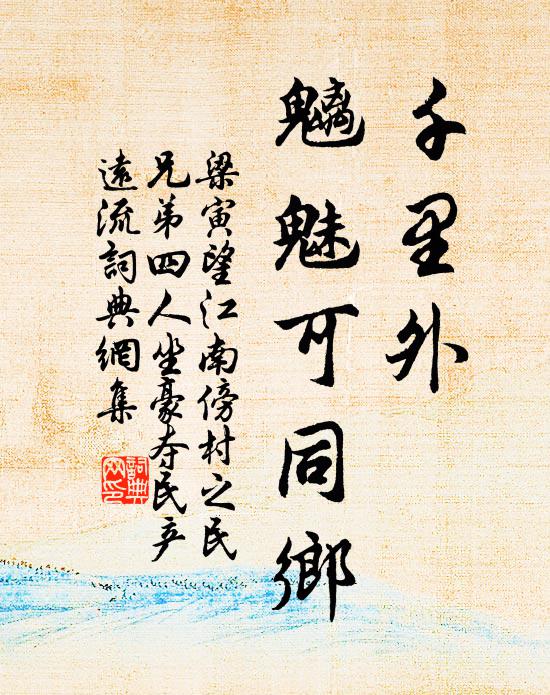 千里外
魑魅可同鄉
梁寅望江南傍村之民
兄弟四人坐豪夺民产
遠流詞典網集
詞典
网印